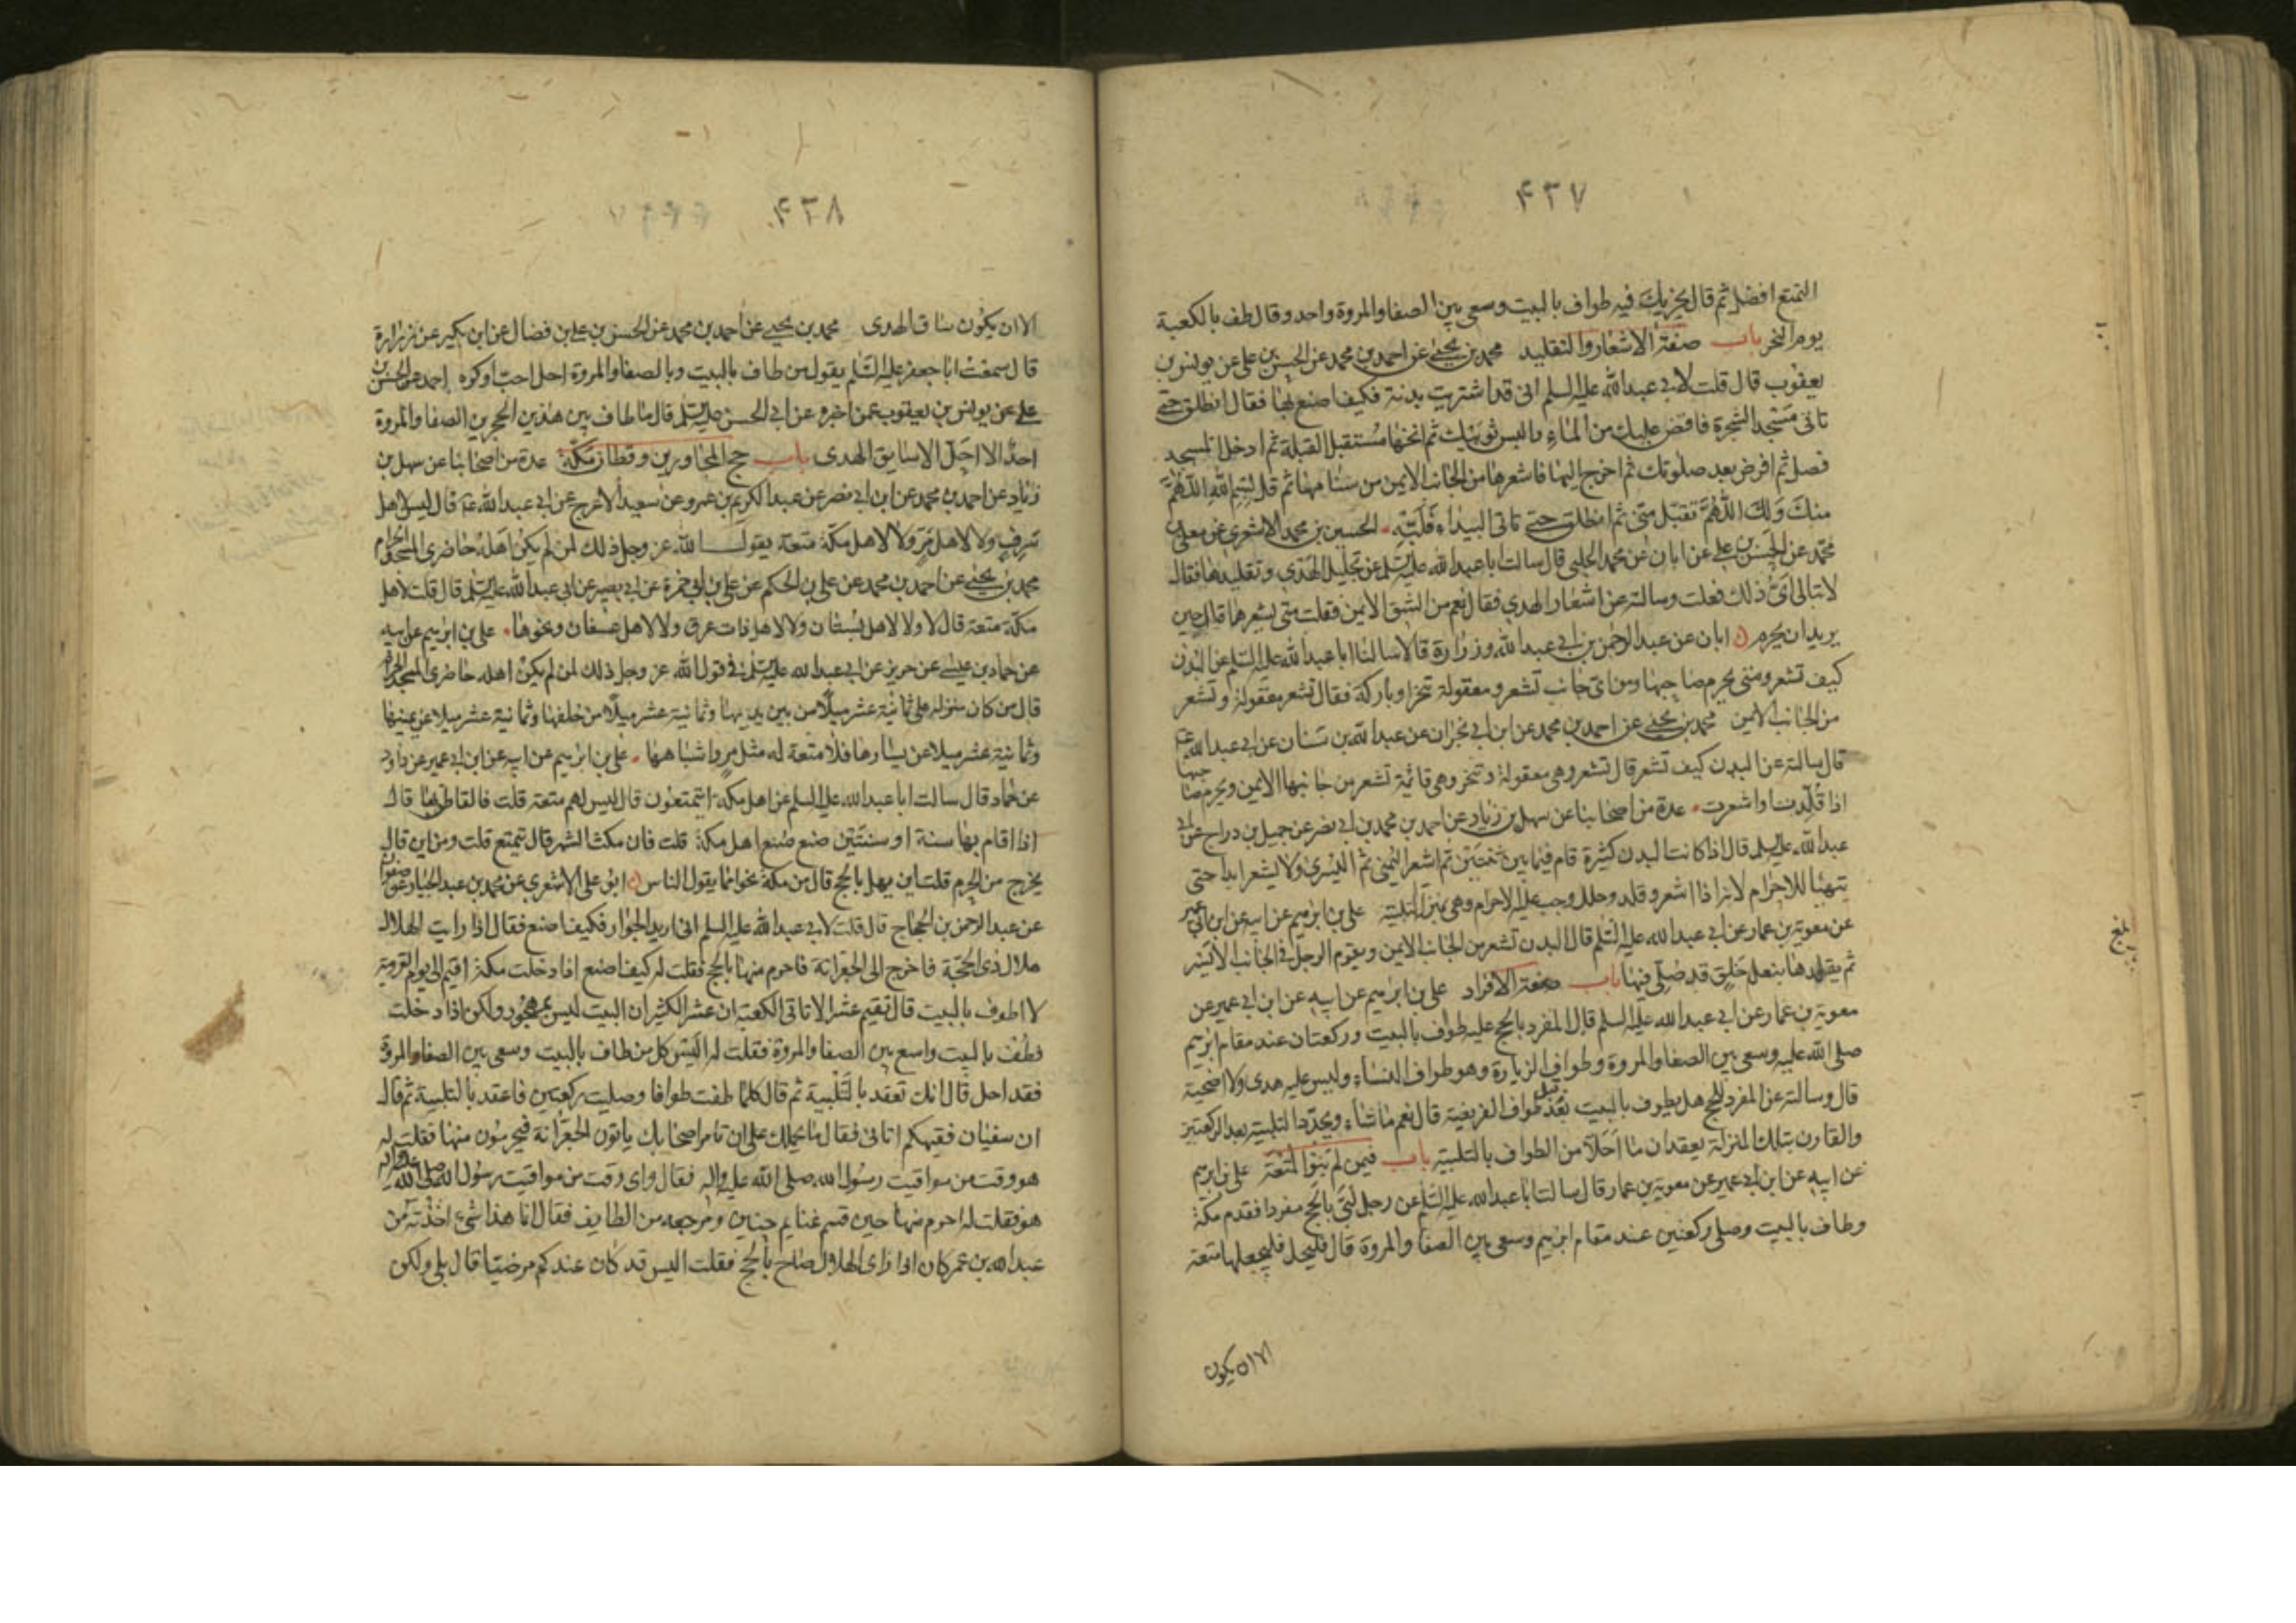 ۴۳۷
التمتع افضل ثم قال يجزيك فيه طواف بالبيت وسعى بين الصفا والمروة واحد وقال طف بالكعبة
يوم النحر باب صفة الاشعار والتقليد محمد بن يحيى عن احمد بن محمد عن الحسن بن على عن يونس بن
يعقوب قال قلت لابى عبد الله عليه السلم انى قد اشتريت بدنة فكيف اصنع بها فقال انطلق حتى
تاتى مسجد الشجرة فافض عليك من الماء والبس ثوبيك ثم انخها مستقبل القبلة ثم ادخل المسجد
فصل ثم افرض بعد صلوتك ثم اخرج اليها فاشعرها من الجانب الايمن من سنامها ثم قل بسم الله اللهم
منك ولك اللهم تقبل منى ثم انطلق حتى تاتى البيداء فلبه الحسين بن محمد الاشعرى عن معلى بن
محمد عن الحسن بن على عن ابان عن محمد الحلبى قال سالت ابا عبد الله عليه السلم عن تجليل الهدى وتقليدها فقال
لا تبالى اى ذلك فعلت وسالته عن اشعار الهدى فقال نعم من الشق الايمن فقلت متى يشعرها قال حين
يريد ان يحرم ابان عن عبد الرحمن بن ابى عبد الله وزرارة قالا سالنا ابا عبد الله عليه السلم عن البدن
كيف تشعر ومتى يحرم صاحبها ومن اى جانب تشعر ومعقولة تنحر او باركة فقال تشعر معقولة وتشعر
من الجانب الايمن محمد بن يحيى عن احمد بن محمد عن ابن ابى نجران عن عبد الله بن سنان عن ابى عبد الله
قال سالته عن البدن كيف تشعر قال تشعر وهى معقولة وتنحر وهى قائمة تشعر من جانبها الايمن ويحرم صاحبها
اذا قلدت واشعرت عدة من اصحابنا عن سهل بن زياد عن احمد بن محمد بن ابى نصر عن جميل بن دراج عن ابى
عبد الله عليه السلم قال اذا كانت البدن كثيرة قام فيما بين ثنتين ثم اشعر اليمنى ثم اليسرى ولا يشعر ابدا حتى
يتهيا للاحرام لانه اذا اشعر وقلد وجلل وجب عليه الاحرام وهى بمنزلة التلبية على بن ابرهيم عن ابيه عن ابن ابى عمير
عن معوية بن عمار عن ابى عبد الله عليه السلم قال البدن تشعر من الجانب الايمن ويقوم الرجل فى الجانب الايسر
ثم يقلدها بنعل خلق قد صلى فيها باب صفة الافراد على بن ابرهيم عن ابيه عن ابن ابى عمير عن
معوية بن عمار عن ابى عبد الله عليه السلم قال المفرد بالحج عليه طواف بالبيت وركعتان عند مقام ابرهيم
صلى الله عليه وسعى بين الصفا والمروة وطواف الزيارة وهو طواف النساء وليس عليه هدى ولا اضحية
قال وسالته عن المفرد للحج هل يطوف بالبيت بعد طواف الفريضة قال نعم ما شاء ويجدد التلبية بعد الركعتين
والقارن بتلك المنزلة يعقدان ما احلا من الطواف بالتلبية باب فيمن لم ينو المتعة على بن ابرهيم
عن ابيه عن ابن ابى عمير عن معوية بن عمار قال سالت ابا عبد الله عليه السلم عن رجل لبى بالحج مفردا فقدم مكة
وطاف بالبيت وصلى ركعتين عند مقام ابرهيم وسعى بين الصفا والمروة قال فليحل فليجعلها متعة
الا ان يكون
بلغ
۴۳۸
الا ان يكون ساق الهدى محمد بن يحيى عن احمد بن محمد عن الحسن بن على بن فضال عن ابن بكير عن زرارة
قال سمعت ابا جعفر عليه السلم يقول من طاف بالبيت وبالصفا والمروة احل احب او كره احمد عن الحسن بن
على عن يونس بن يعقوب عمن اخبره عن ابى الحسن عليه السلم قال ما طاف بين هذين الحجرين الصفا والمروة
احد الا احل الا سايق الهدى باب حج المجاورين وقطان مكة عدة من اصحابنا عن سهل بن
زياد عن احمد بن محمد عن ابن ابى نصر عن عبد الكريم بن عمرو عن سعيد الاعرج عن ابى عبد الله قال ليس لاهل
سرف ولا لاهل مر ولا لاهل مكة متعة يقول الله عز وجل ذلك لمن لم يكن اهله حاضرى المسجد الحرام
محمد بن يحيى عن احمد بن محمد عن على بن الحكم عن على بن ابى حمزة عن ابى بصير عن ابى عبد الله عليه السلم قال قلت لاهل
مكة متعة قال لا ولا لاهل بستان ولا لاهل ذات عرق ولا لاهل عسفان ونحوها على بن ابرهيم عن ابيه
عن حماد بن عيسى عن حريز عن ابى عبد الله عليه السلم فى قول الله عز وجل ذلك لمن لم يكن اهله حاضرى المسجد الحرام
قال من كان منزله على ثمانية عشر ميلا من بين يديها وثمانية عشر ميلا من خلفها وثمانية عشر ميلا عن يمينها
وثمانية عشر ميلا عن يسارها فلا متعة له مثل مر واشباهها على بن ابرهيم عن ابيه عن ابن ابى عمير عن داود
عن حماد قال سالت ابا عبد الله عليه السلم عن اهل مكة ايتمتعون قال ليس لهم متعة قلت فالقاطن بها قال
اذا اقام بها سنة او سنتين صنع صنع اهل مكة قلت فان مكث الشهر قال يتمتع قلت ومن اين قال
يخرج من الحرم قلت اين يهل بالحج قال من مكة نحوا مما يقول الناس ابو على الاشعرى عن محمد بن عبد الجبار عن صفوان
عن عبد الرحمن بن الحجاج قال قلت لابى عبد الله عليه السلم انى اريد الجوار فكيف اصنع فقال اذا رايت الهلال
هلال ذى الحجة فاخرج الى الجعرانة فاحرم منها بالحج فقلت له كيف اصنع اذا دخلت مكة اقيم الى يوم التروية
لا اطوف بالبيت قال تقيم عشرا لا تاتى الكعبة ان عشرا لكثير ان البيت ليس بمهجور ولكن اذا دخلت
فطف بالبيت واسع بين الصفا والمروة فقلت له اليس كل من طاف بالبيت وسعى بين الصفا والمروة
فقد احل قال انك تعقد بالتلبية ثم قال كلما طفت طوافا وصليت ركعتين فاعقد بالتلبية ثم قال
ان سفيان فقيهكم اتانى فقال ما يحملك على ان تامر اصحابك ياتون الجعرانة فيحرمون منها فقلت له
هو وقت من مواقيت رسول الله صلى الله عليه واله فقال واى وقت من مواقيت رسول الله صلى الله عليه واله
هو فقلت له احرم منها حين قسم غنايم حنين ومرجعه من الطايف فقال انما هذا شىء اخذته من
عبد الله بن عمر كان اذا راى الهلال صاح بالحج فقلت اليس قد كان عندكم مرضيا قال بلى ولكن